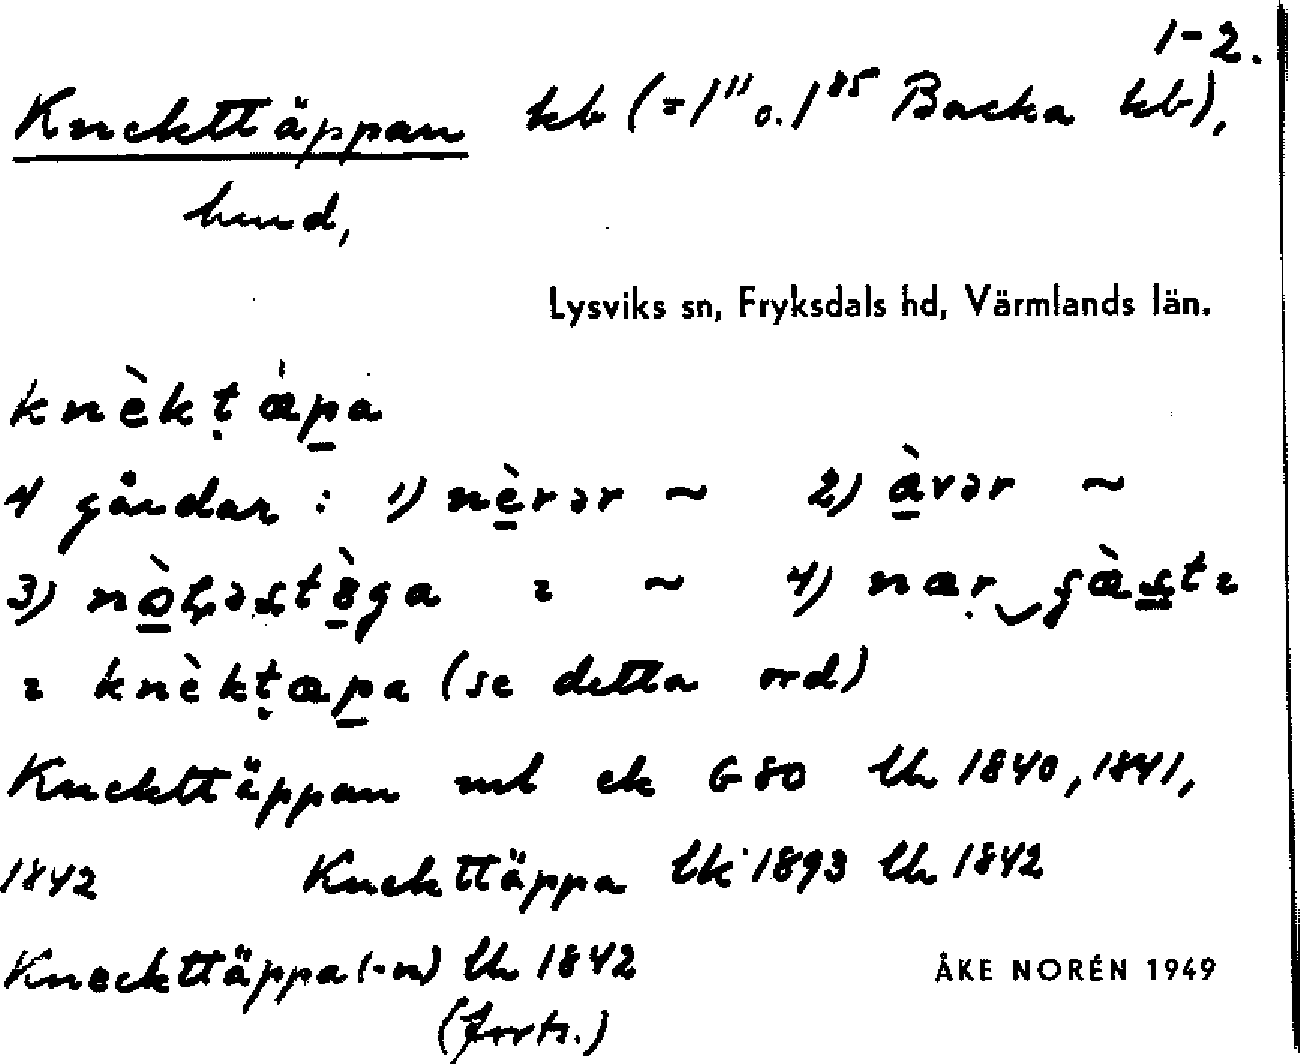 1-2.
Kneckttäppan hb (=1¹¹ o. 1⁸⁵ Backa hb),
hmd,
Lysviks sn, Fryksdals hd, Värmlands län.
knèkṭápa
4 gårdar : 1) nèrər ~ 2) àvər ~
3) ~ 4) nær
(se detta ord)
Kneckttäppan ek G80 lh 1840, 1841,
1842 Kneckttäppa lk 1893 lh 1842
Kneckttäppa(-n) lh 1842
ÅKE NORÉN 1949
(forts.)